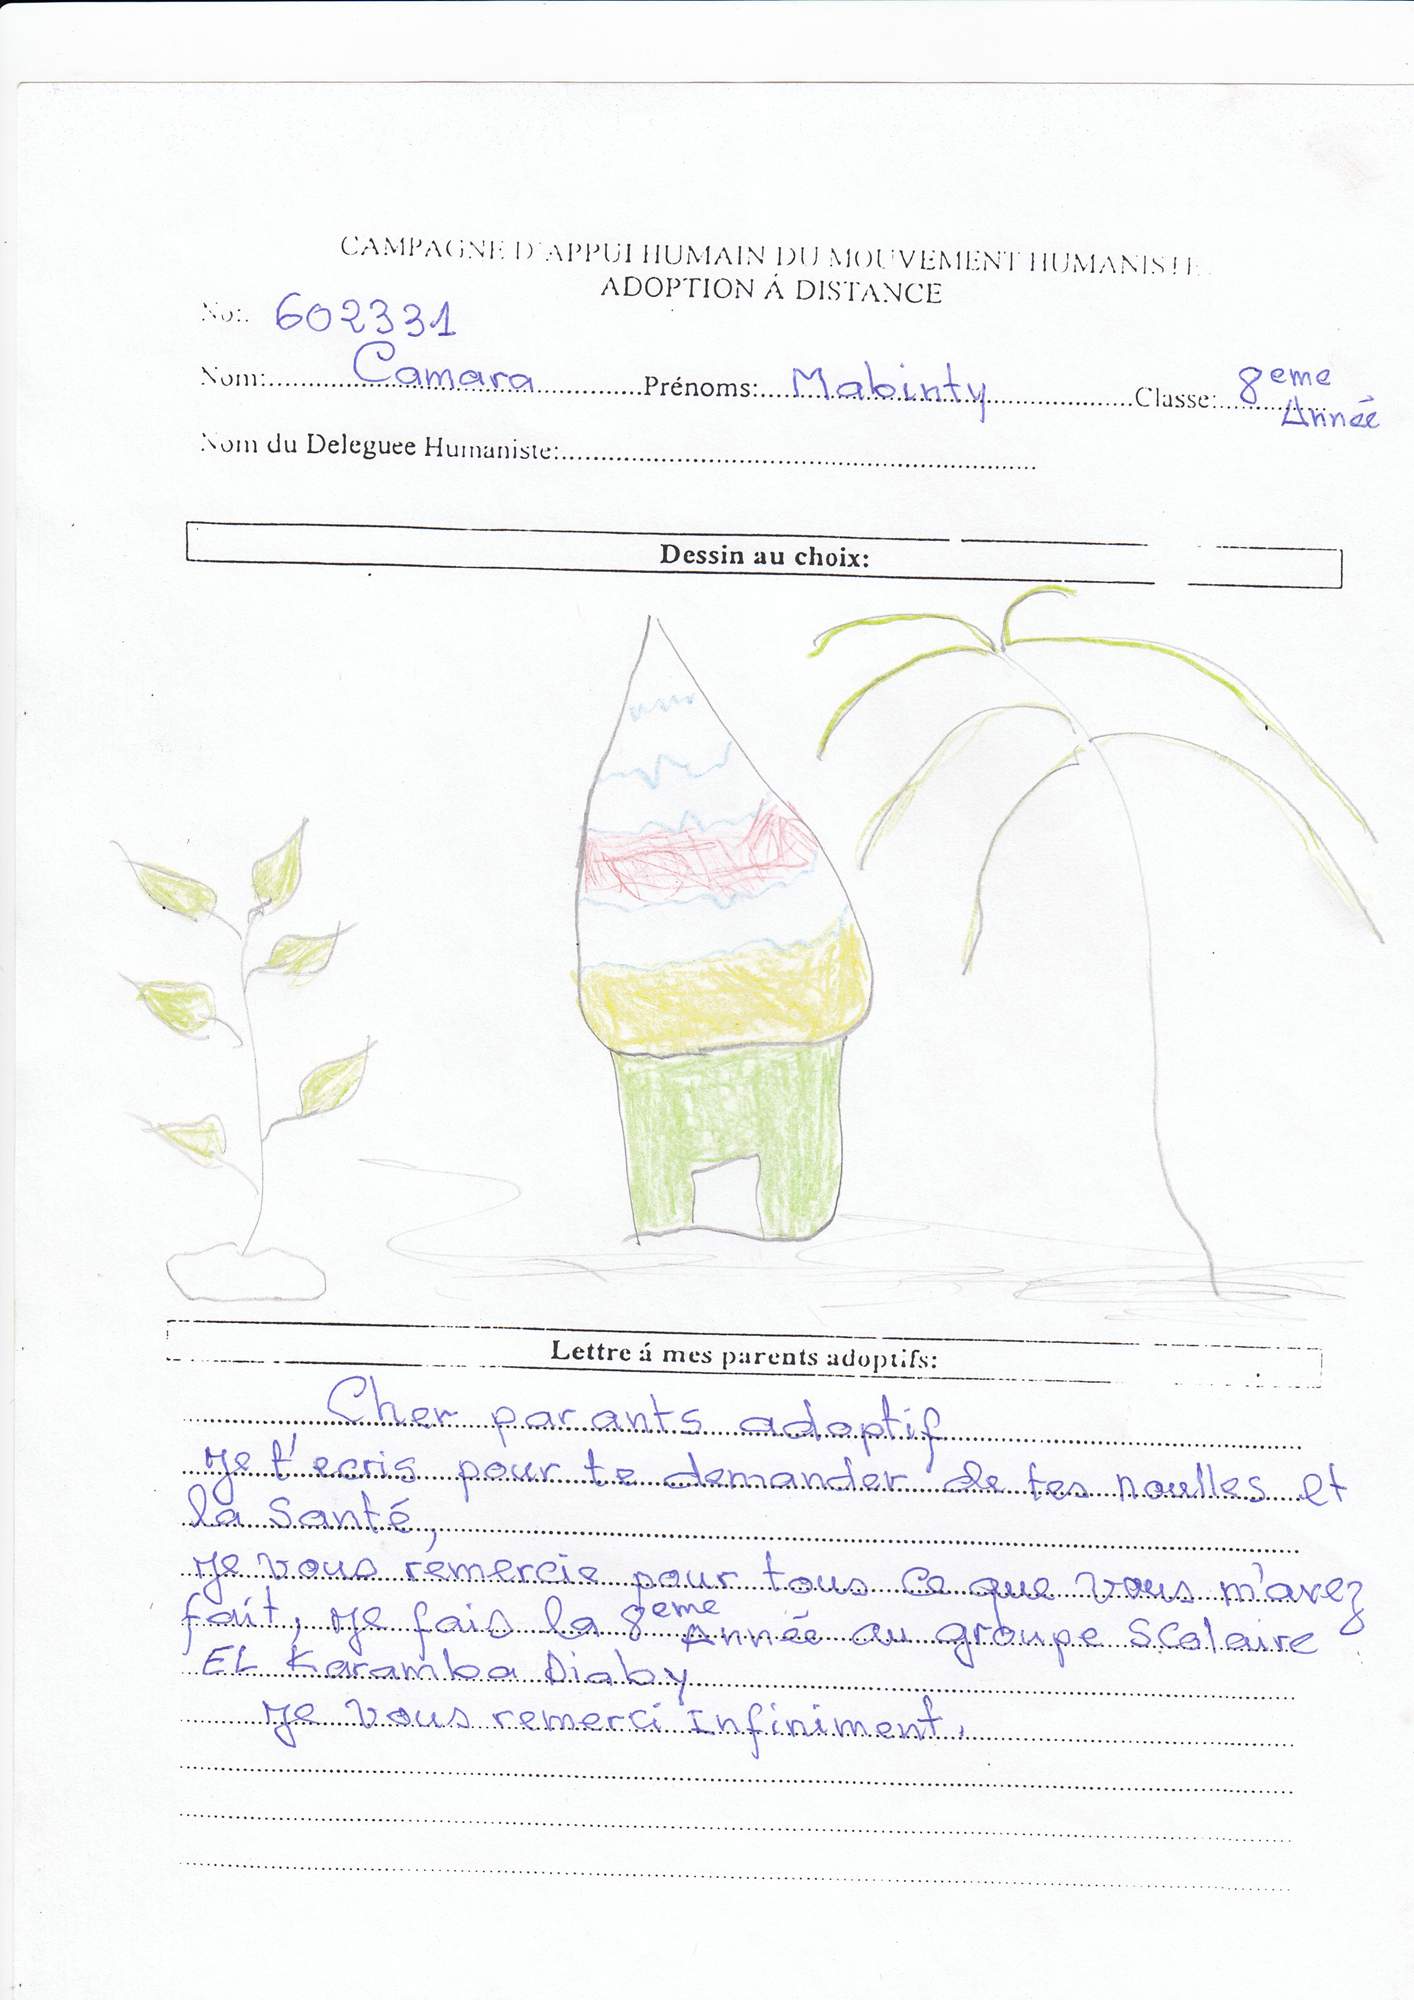 CAMPAGNE D'APPUI HUMAIN DU MOUVEMENT HUMANISTE
ADOPTION Á DISTANCE
No:. 602331
Nom:......Camara......Prénoms:....Mabinty......Classe:...8eme Année
Nom du Deleguee Humaniste:......
Dessin au choix:
Lettre á mes parents adoptifs:
Cher parants adoptif
Je t'ecris pour te demander de tes noulles et
la Santé,
Je vous remercie pour tous ce que vous m'avez
fait, Je fais la 8eme Année au groupe Scolaire
EL Karamba Diaby
Je vous remerci Infiniment.